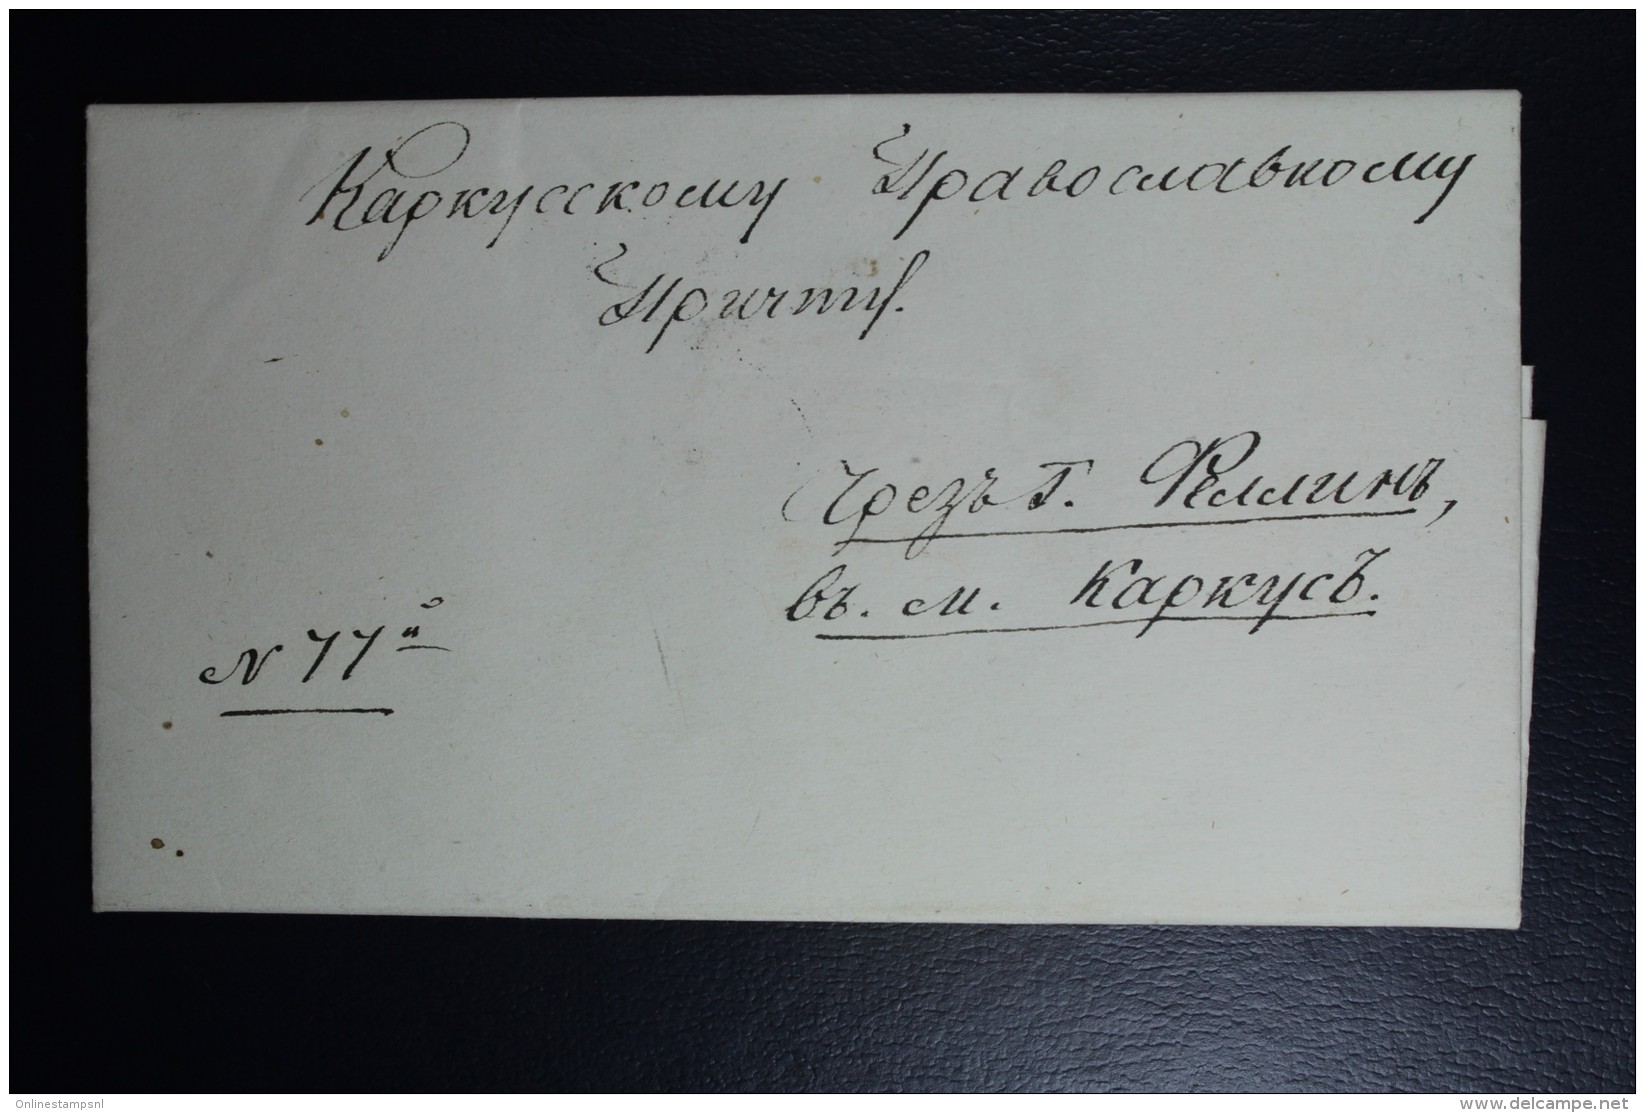 Каркусскому Православному
Причту.
Чрезъ г. Феллинъ,
въ. м. Каркусъ.
N 77й
Onlinestampsnl
http://www.delcampe.net